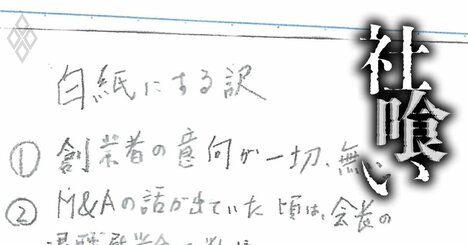 白紙にする訳
① 創業者の意向が一切、無い
② M&Aの話が出ていた頃は、会長の
社喰い